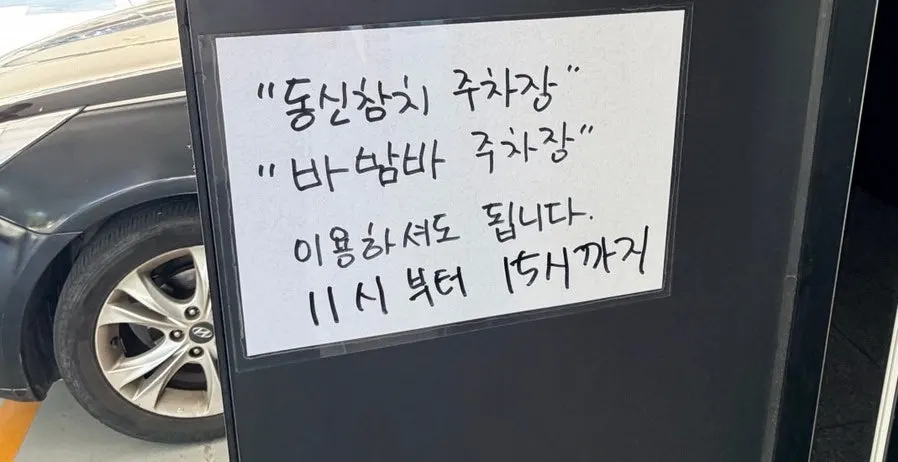 "동신참치 주차장"
"바밤바 주차장"
이용하셔도 됩니다.
11시부터 15시까지